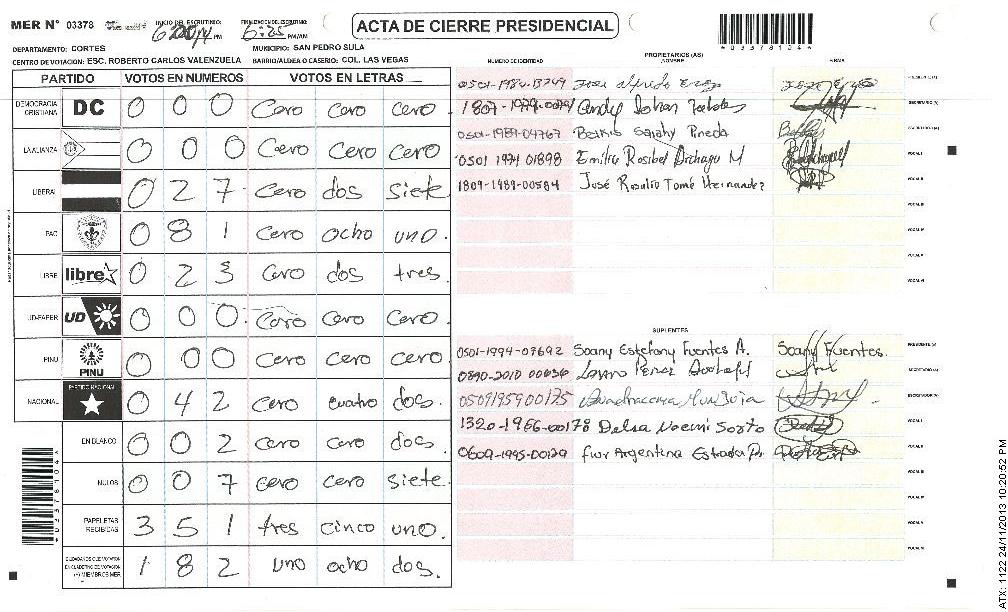 MER N° 03378 INICIO DEL ESCRUTINIO: PM FINALIZACION DEL ESCRUTINIO: 6:25 PM/AM
ACTA DE CIERRE PRESIDENCIAL
DEPARTAMENTO: CORTES MUNICIPIO: SAN PEDRO SULA
CENTRO DE VOTACION: ESC. ROBERTO CARLOS VALENZUELA BARRIO/ALDEA O CASERIO: COL. LAS VEGAS
PARTIDO VOTOS EN NUMEROS VOTOS EN LETRAS
DEMOCRACIA CRISTIANA DC 0 0 0 Cero Cero Cero
LA ALIANZA 0 0 0 Cero Cero Cero
LIBERAL 0 2 7 Cero dos siete
PAC 0 8 1 Cero ocho uno.
LIBRE libre 0 2 3 Cero dos tres
UD-FAPER UD 0 0 0 Cero Cero Cero.
PINU PINU 0 0 0 Cero Cero Cero
NACIONAL PARTIDO NACIONAL 0 4 2 Cero cuatro dos.
EN BLANCO 0 0 2 Cero Cero dos.
NULOS 0 0 7 Cero Cero siete.
PAPELETAS RECIBIDAS 3 5 1 tres cinco uno.
CIUDADANOS QUE VOTARON EN CUADERNO DE VOTACION (+) MIEMBROS MER 1 8 2 uno ocho dos.
PROPIETARIOS (AS)
NUMERO DE IDENTIDAD NOMBRE FIRMA
Jose alfredo PRESIDENTE (A)
Andy Johan SECRETARIO (A)
0501-1989-04767 Belkis Sarahy Pineda ESCRUTADOR (A)
0501 1974 01898 Emilia Rosibel M VOCAL I
1809-1989-00584 José Rosalio Tomé Hernandez VOCAL II
VOCAL III
VOCAL IV
VOCAL V
VOCAL VI
SUPLENTES
0501-1994-07692 Soany Estefany Fuentes A. Soany Fuentes. PRESIDENTE (A)
0890-2010 00636 Perez SECRETARIO (A)
0509195900175 ESCRUTADOR (A)
1320-1966-00178 Delsa Noemi Sorto VOCAL I
0609-1995-00129 Argentina Estrada VOCAL II
VOCAL III
VOCAL IV
VOCAL V
VOCAL VI
ATX: 1122 24/11/2013 10:20:52 PM